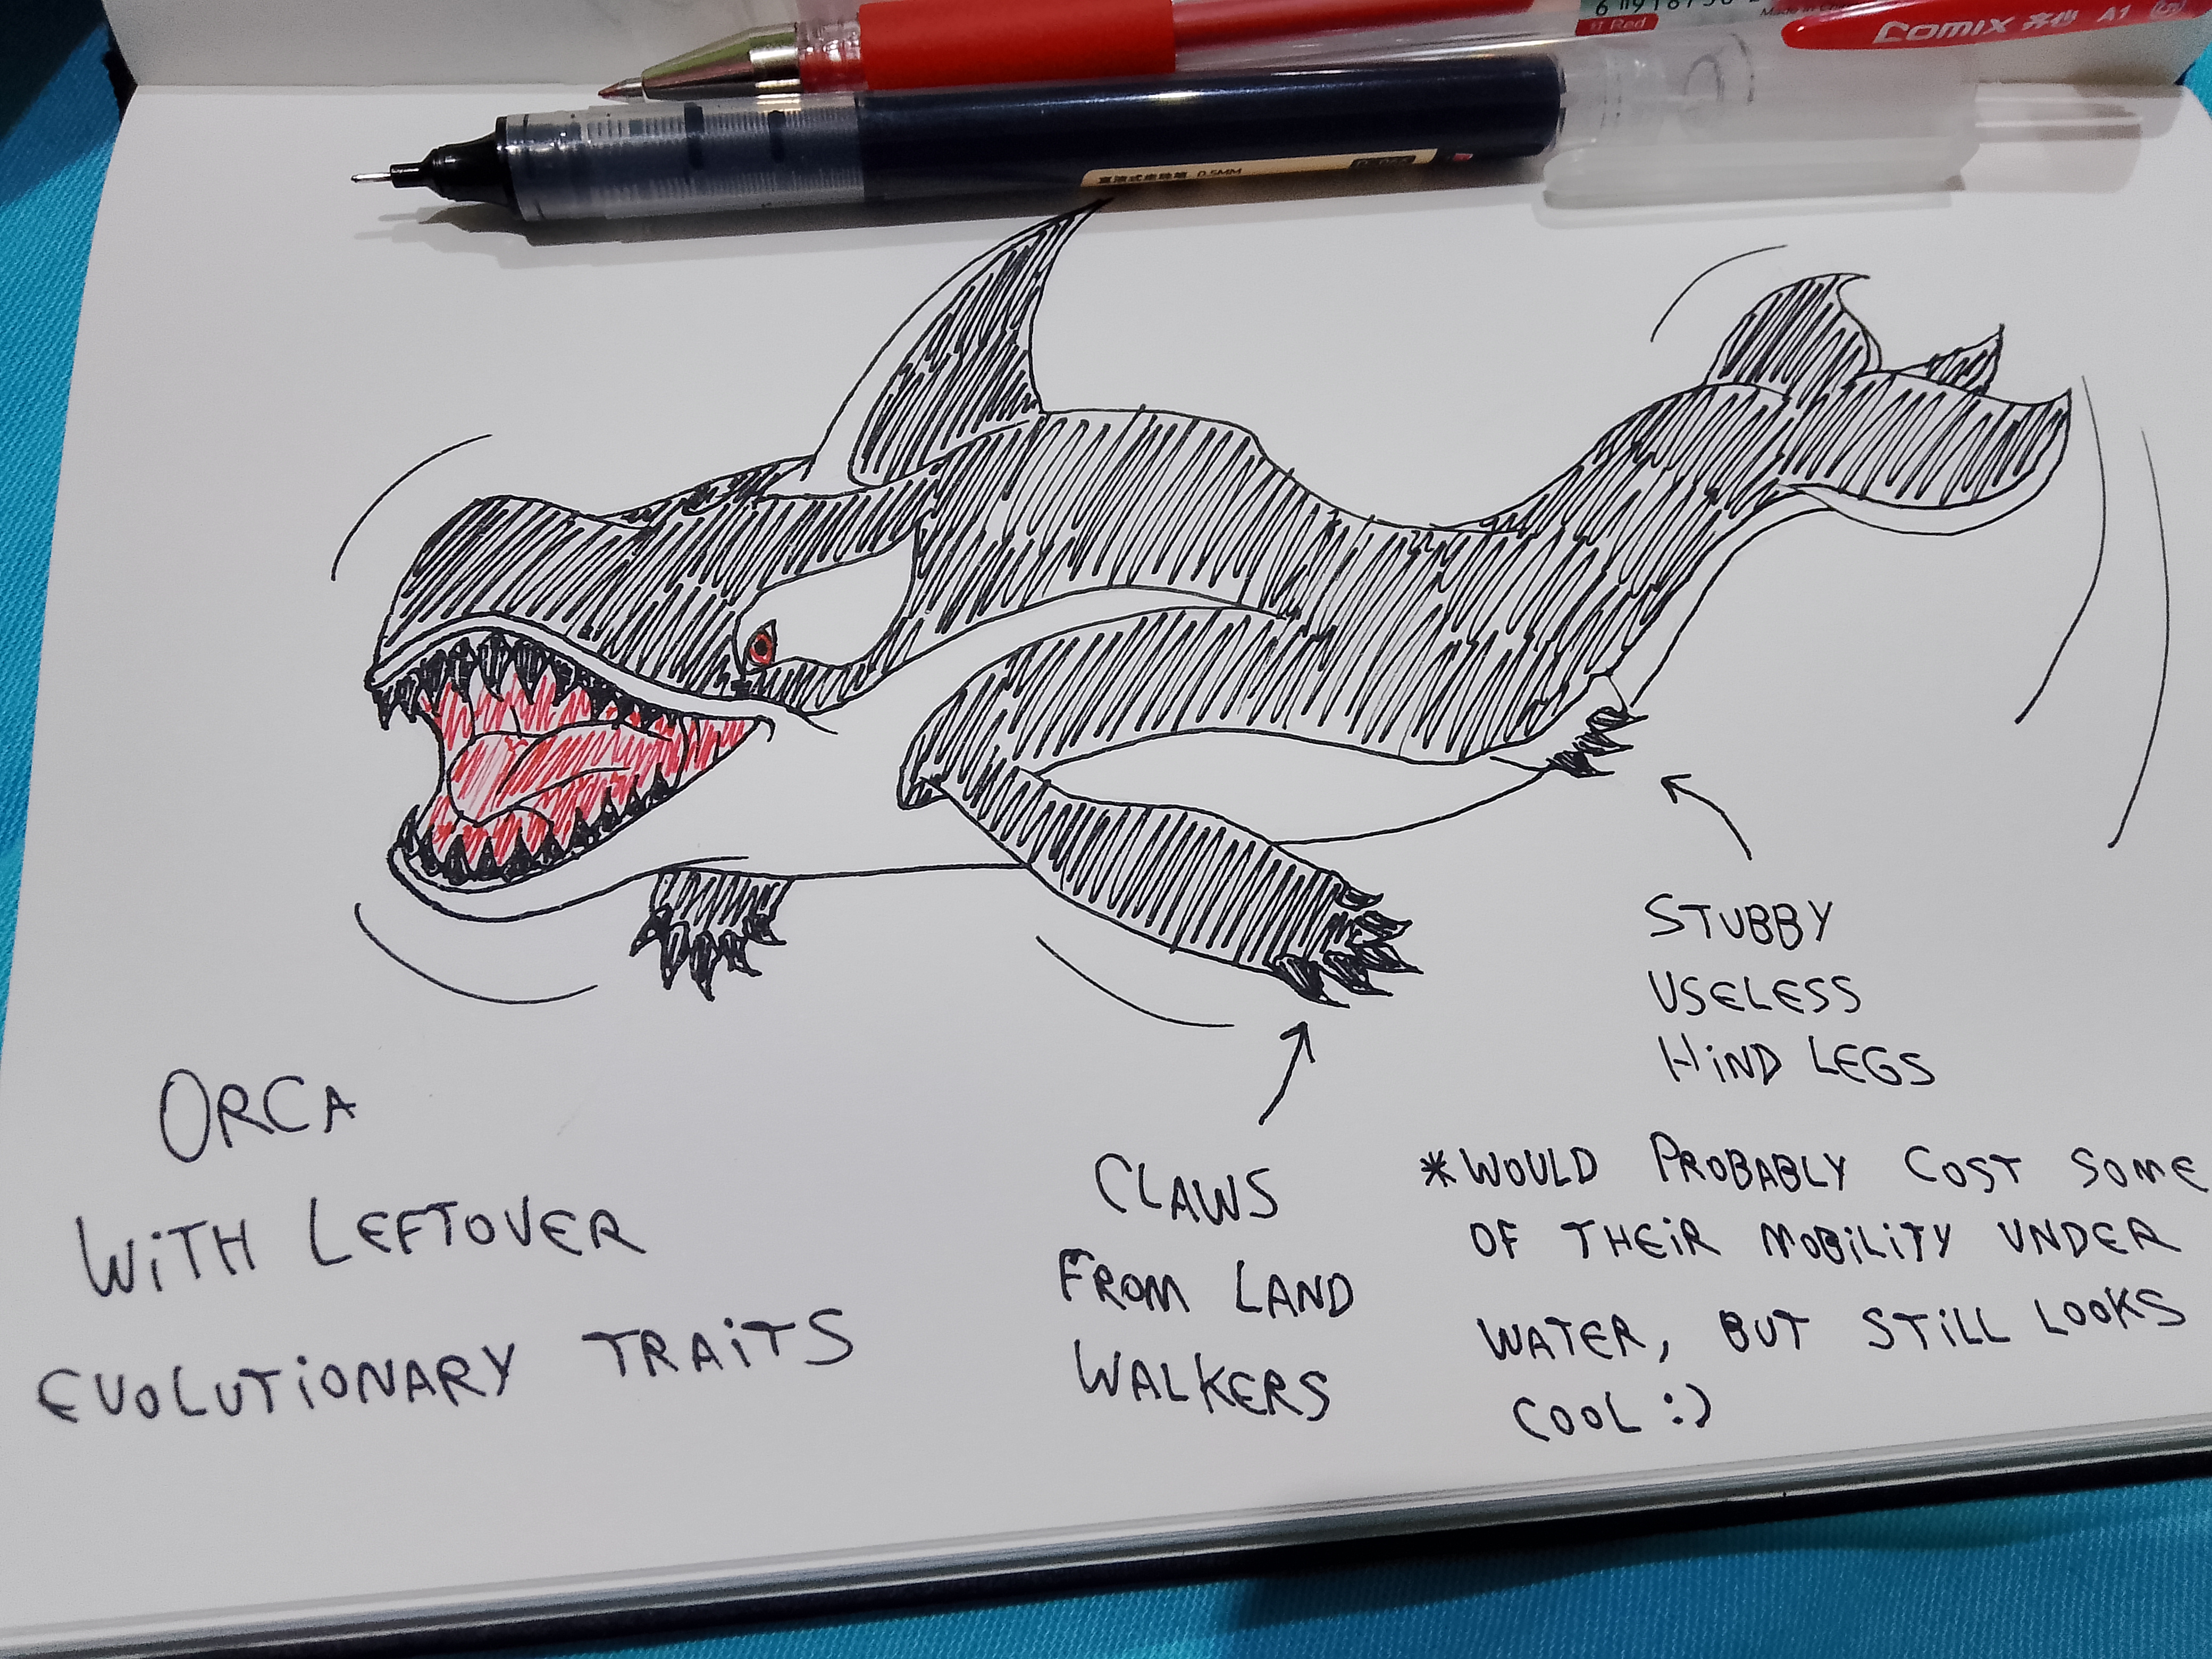 红 Red
Comix 齐心 A1
直液式走珠笔 0.5MM
STUBBY
USELESS
HiND LEGS
ORCA
WiTH LEFTOVER
EVOLUTiONARY TRAiTS
CLAWS
FROM LAND
WALKERS
*WOULD PROBABLY COST SOME
OF THEiR MOBiLiTY UNDER
WATER, BUT STiLL LOOKS
COOL :)